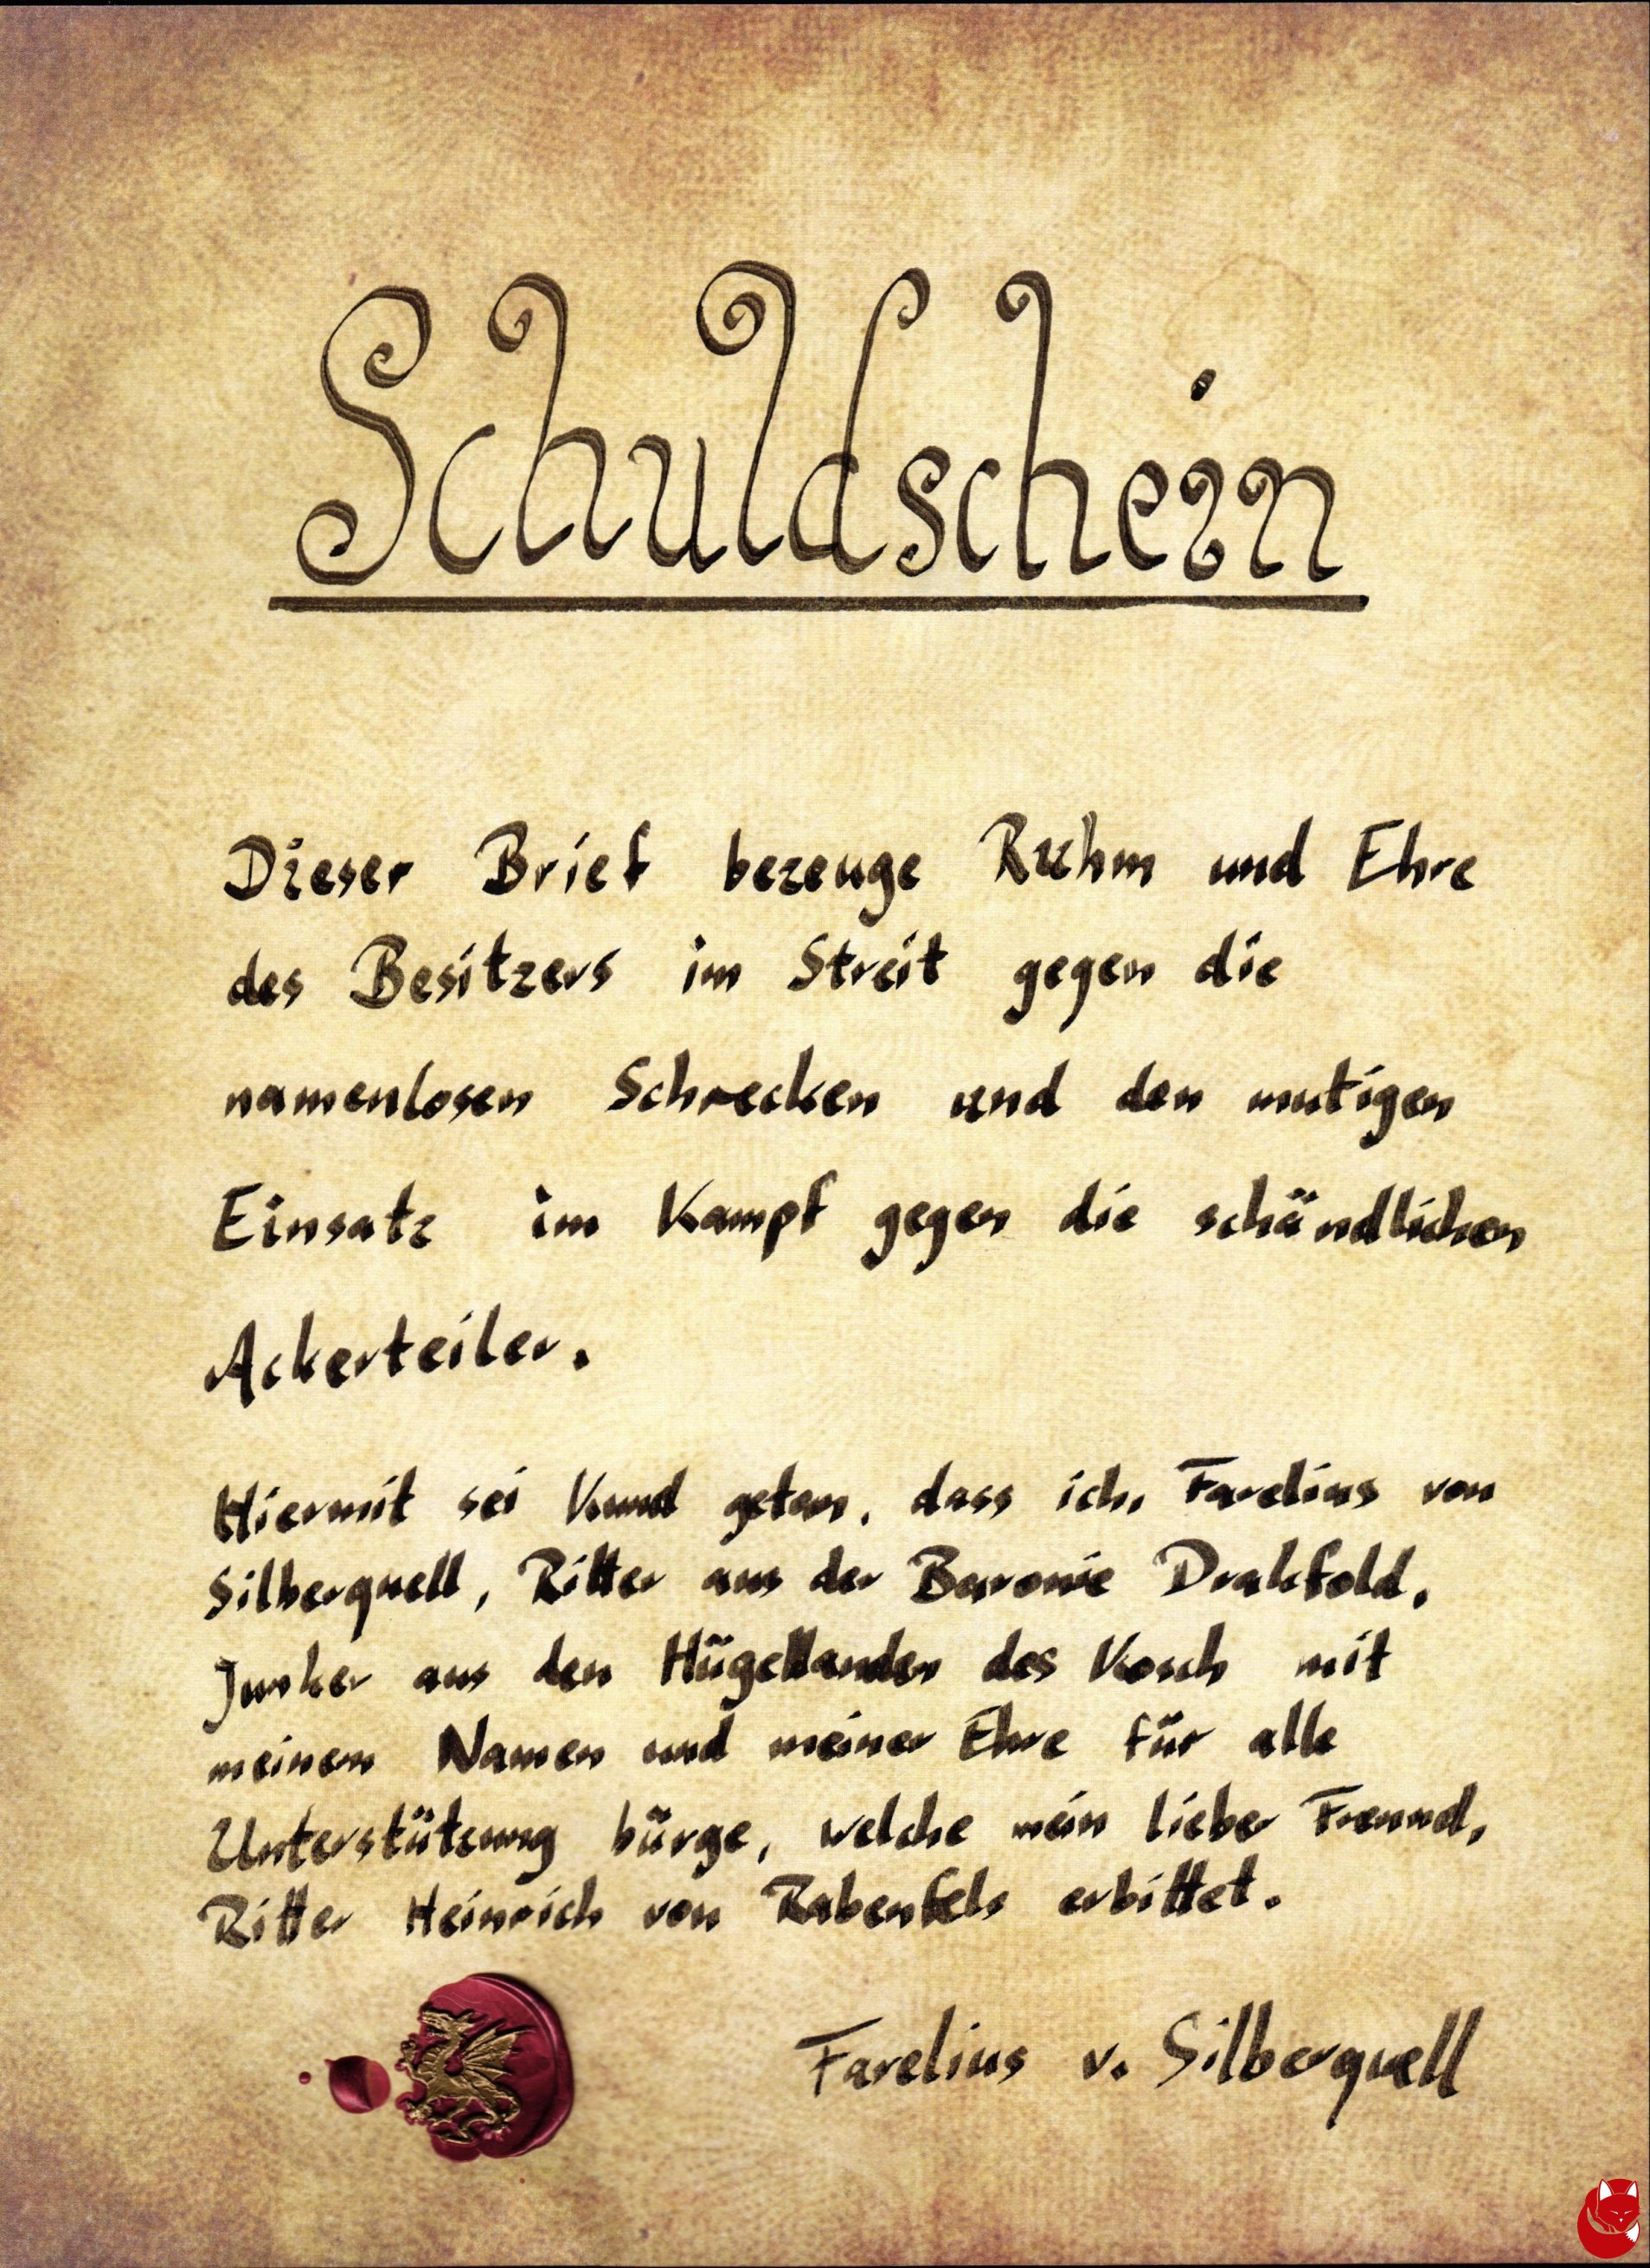 Schuldschein
Dieser Brief bezeuge Ruhm und Ehre
des Besitzers im Streit gegen die
namenlosen Schrecken und den mutigen
Einsatz im Kampf gegen die schändlichen
Ackerteiler.
Hiermit sei Kund getan, dass ich, Farelius von
Silberquell, Ritter aus der Baronie Drakfold,
Junker aus den Hügellanden des Kosch mit
meinem Namen und meiner Ehre für alle
Unterstützung bürge, welche mein lieber Freund,
Ritter Heinrich von Rabenfels erbittet.
Farelius v. Silberquell